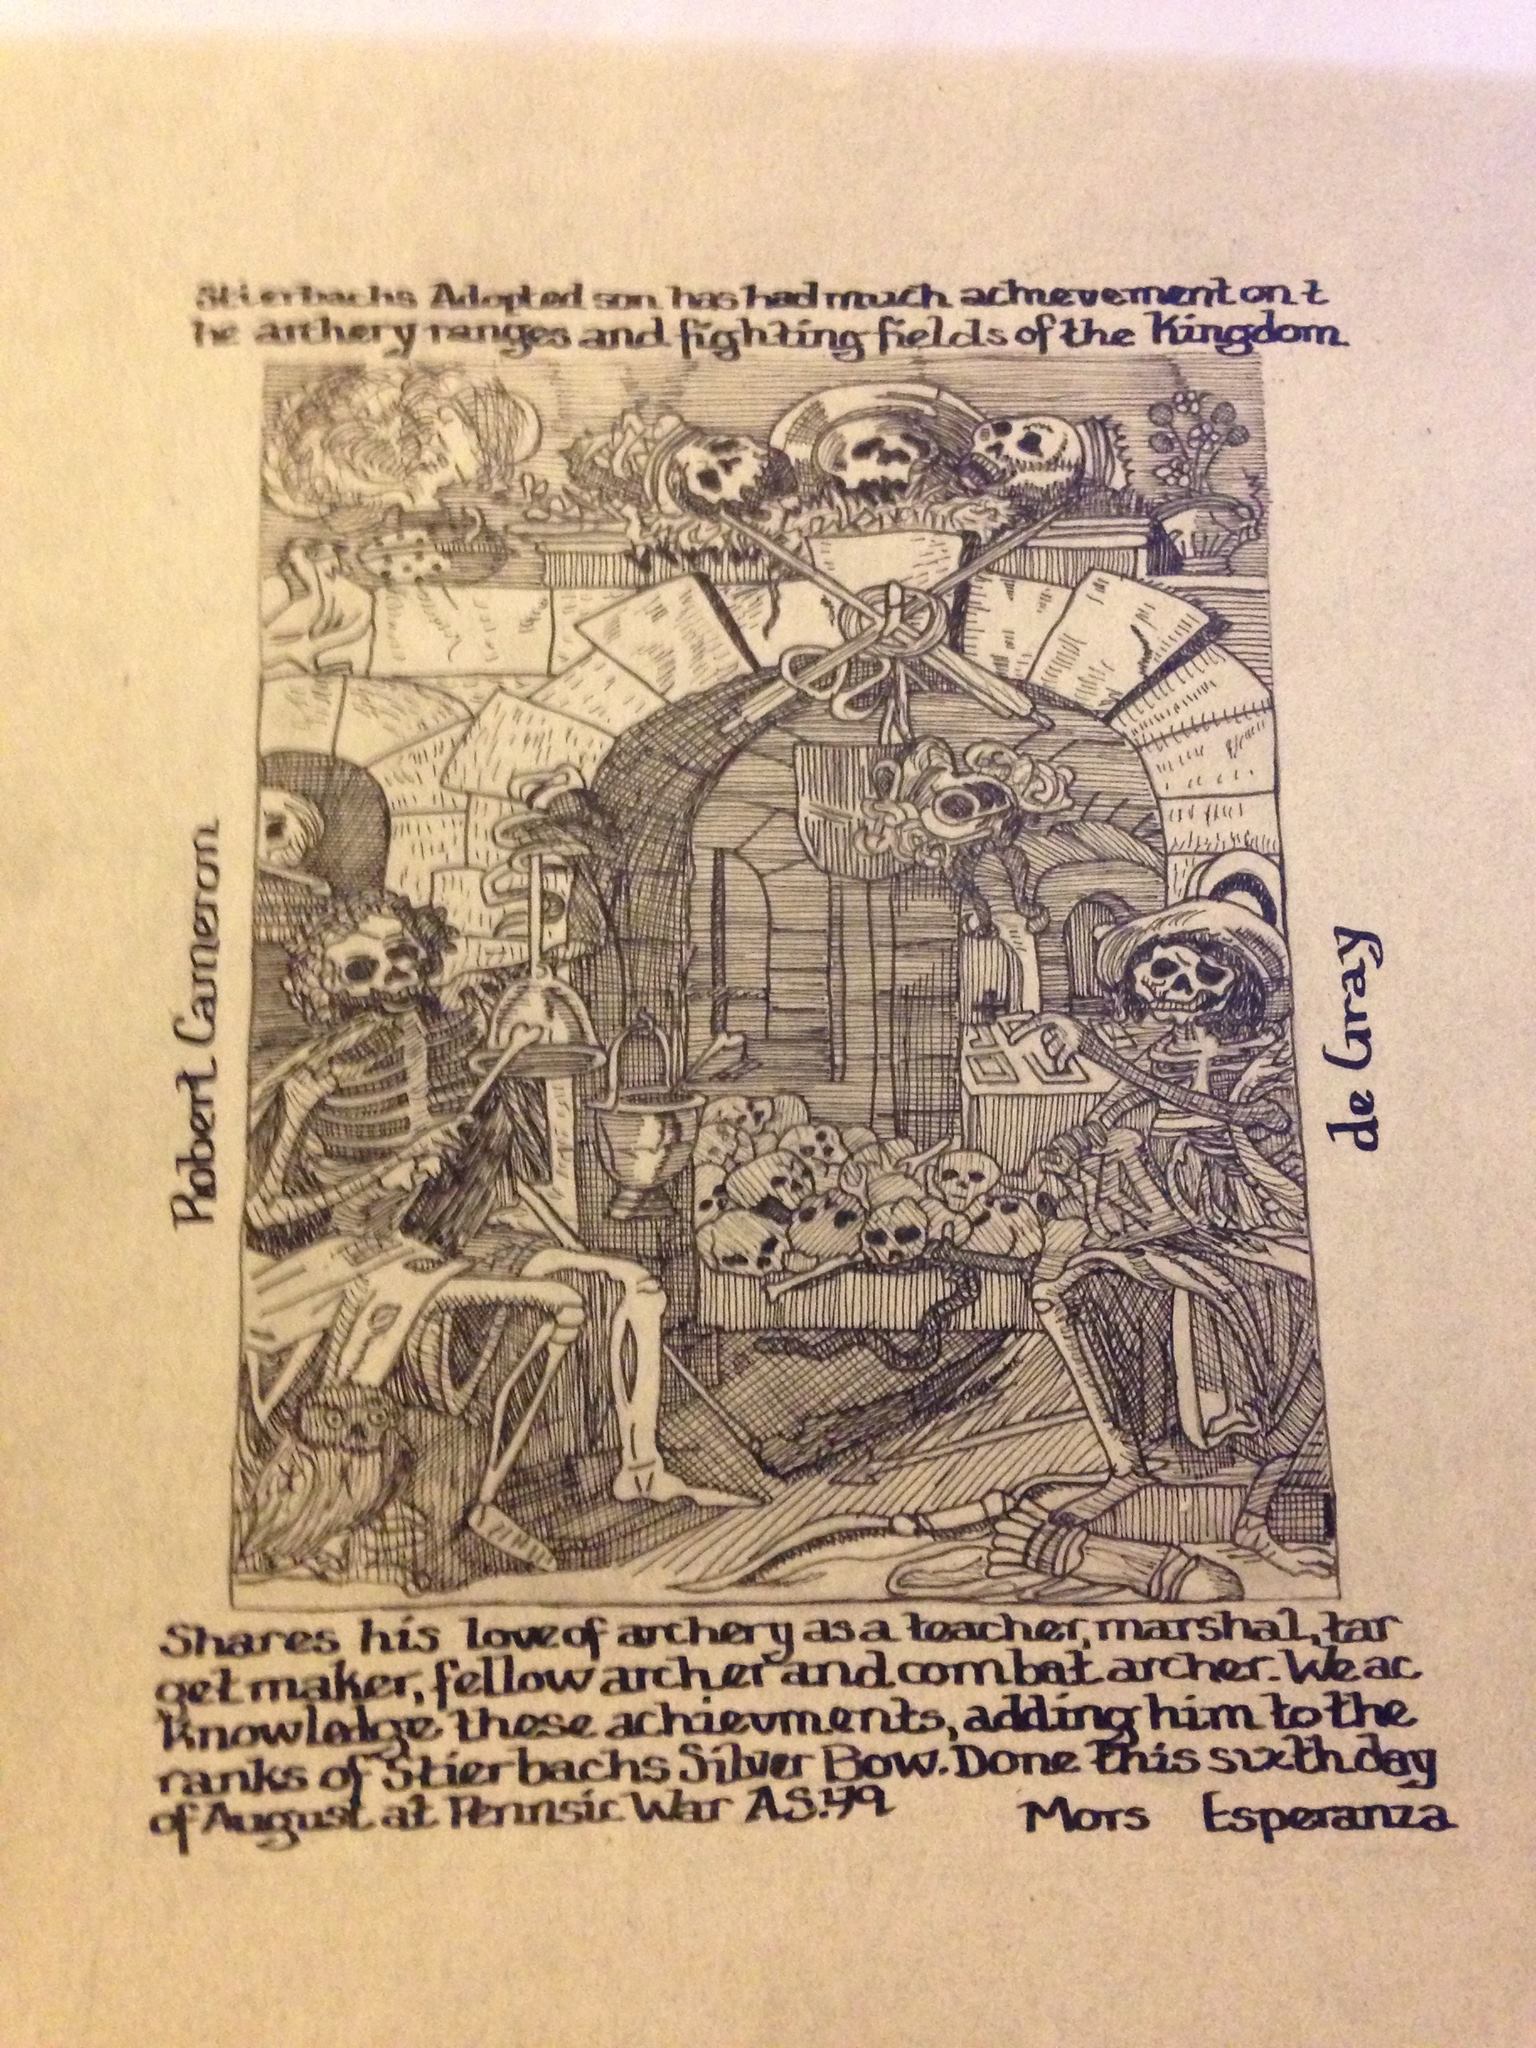 Stierbachs Adopted son has had much achievement on t
he archery ranges and fighting fields of the Kingdom
Robert Cameron
de Gray
Shares his love of archery as a teacher, marshal, tar
get maker, fellow archer and combat archer. We ac
knowledge these achievments, adding him to the
ranks of Stierbachs Silver Bow. Done this sixth day
of August at Pennsic War A.S.49
Mors Esperanza